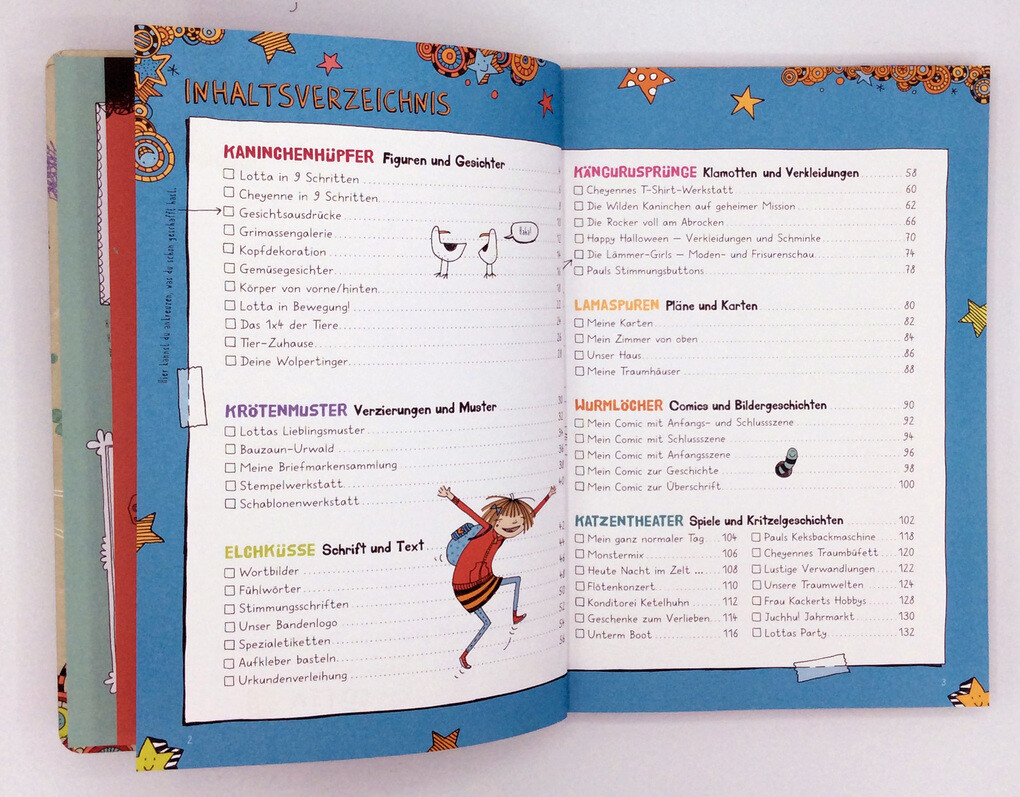 INHALTSVERZEICHNIS
KANINCHENHÜPFER Figuren und Gesichter
Lotta in 9 Schritten
Cheyenne in 9 Schritten
Gesichtsausdrücke
Grimassengalerie
Kopfdekoration
Gemüsegesichter
Körper von vorne/hinten
Lotta in Bewegung!
Das 1x4 der Tiere
Tier-Zuhause
Deine Wolpertinger
Hier kannst du ankreuzen, was du schon geschafft hast.
KRÖTENMUSTER Verzierungen und Muster
Lottas Lieblingsmuster
Bauzaun-Urwald
Meine Briefmarkensammlung
Stempelwerkstatt
Schablonenwerkstatt
ELCHKÜSSE Schrift und Text
Wortbilder
Fühlwörter
Stimmungsschriften
Unser Bandenlogo
Spezialetiketten
Aufkleber basteln
Urkundenverleihung
2
KÄNGURUSPRÜNGE Klamotten und Verkleidungen 58
Cheyennes T-Shirt-Werkstatt 60
Die Wilden Kaninchen auf geheimer Mission 62
Die Rocker voll am Abrocken 66
Happy Halloween – Verkleidungen und Schminke 70
Die Lämmer-Girls – Moden- und Frisurenschau 74
Pauls Stimmungsbuttons 78
LAMASPUREN Pläne und Karten 80
Meine Karten 82
Mein Zimmer von oben 84
Unser Haus 86
Meine Traumhäuser 88
WURMLÖCHER Comics und Bildergeschichten 90
Mein Comic mit Anfangs- und Schlussszene 92
Mein Comic mit Schlussszene 94
Mein Comic mit Anfangsszene 96
Mein Comic zur Geschichte 98
Mein Comic zur Überschrift 100
KATZENTHEATER Spiele und Kritzelgeschichten 102
Mein ganz normaler Tag 104
Monstermix 106
Heute Nacht im Zelt ... 108
Flötenkonzert 110
Konditorei Ketelhuhn 112
Geschenke zum Verlieben 114
Unterm Boot 116
Pauls Keksbackmaschine 118
Cheyennes Traumbüfett 120
Lustige Verwandlungen 122
Unsere Traumwelten 124
Frau Kackerts Hobbys 128
Juchhu! Jahrmarkt 130
Lottas Party 132
3